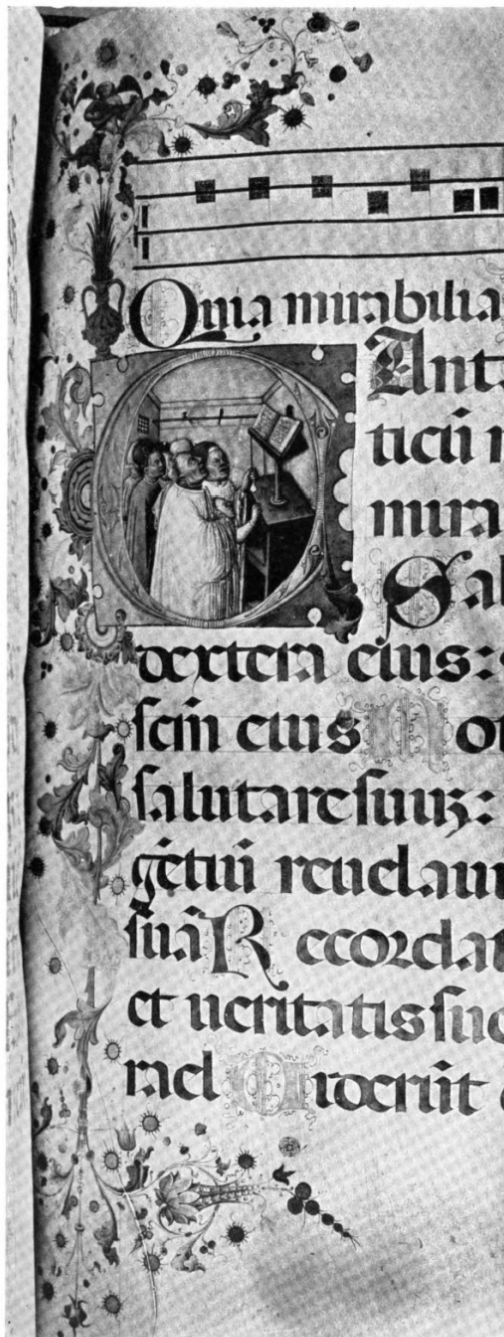 Quia mirabilia
CAnta
ticū n
mira
Sal
dextera eius:
scm̄ eius Not
salutare suuz:
gētiū reuelaui
suā Recordat
et ueritatis sue
rael Uiderūt